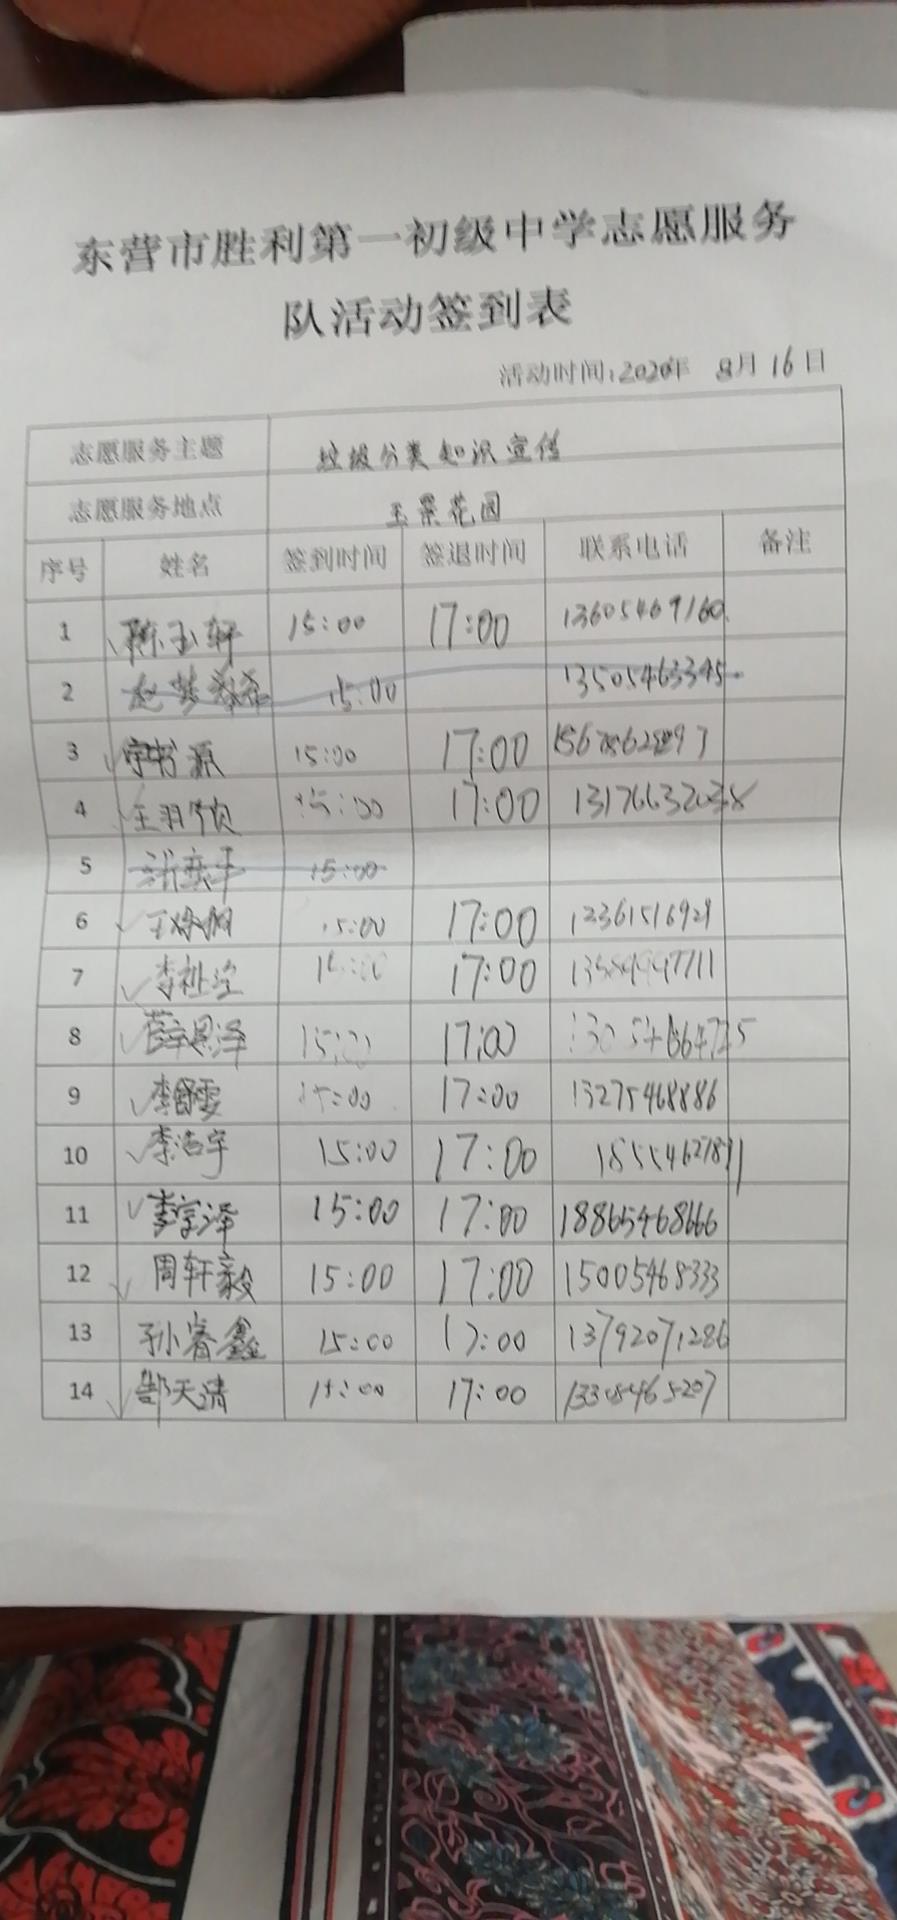 东营市胜利第一初级中学志愿服务
队活动签到表
活动时间:2020年 8月16日
志愿服务主题 垃圾分类知识宣传
志愿服务地点 玉景花园
序号 姓名 签到时间 签退时间 联系电话 备注
1 陈玉轩 15:00 17:00 13605469160
2 15:00 13505463345
3 15:00 17:00
4 15:00 17:00
5 15:00
6 15:00 17:00 12361516929
7 15:00 17:00
8 15:00 17:00
9 李舒雯 15:00 17:00 13275468886
10 李浩宇 15:00 17:00 18554627811
11 李宗泽 15:00 17:00 18865468666
12 周轩毅 15:00 17:00 15005468333
13 孙睿鑫 15:00 17:00 13792071286
14 郜天清 15:00 17:00